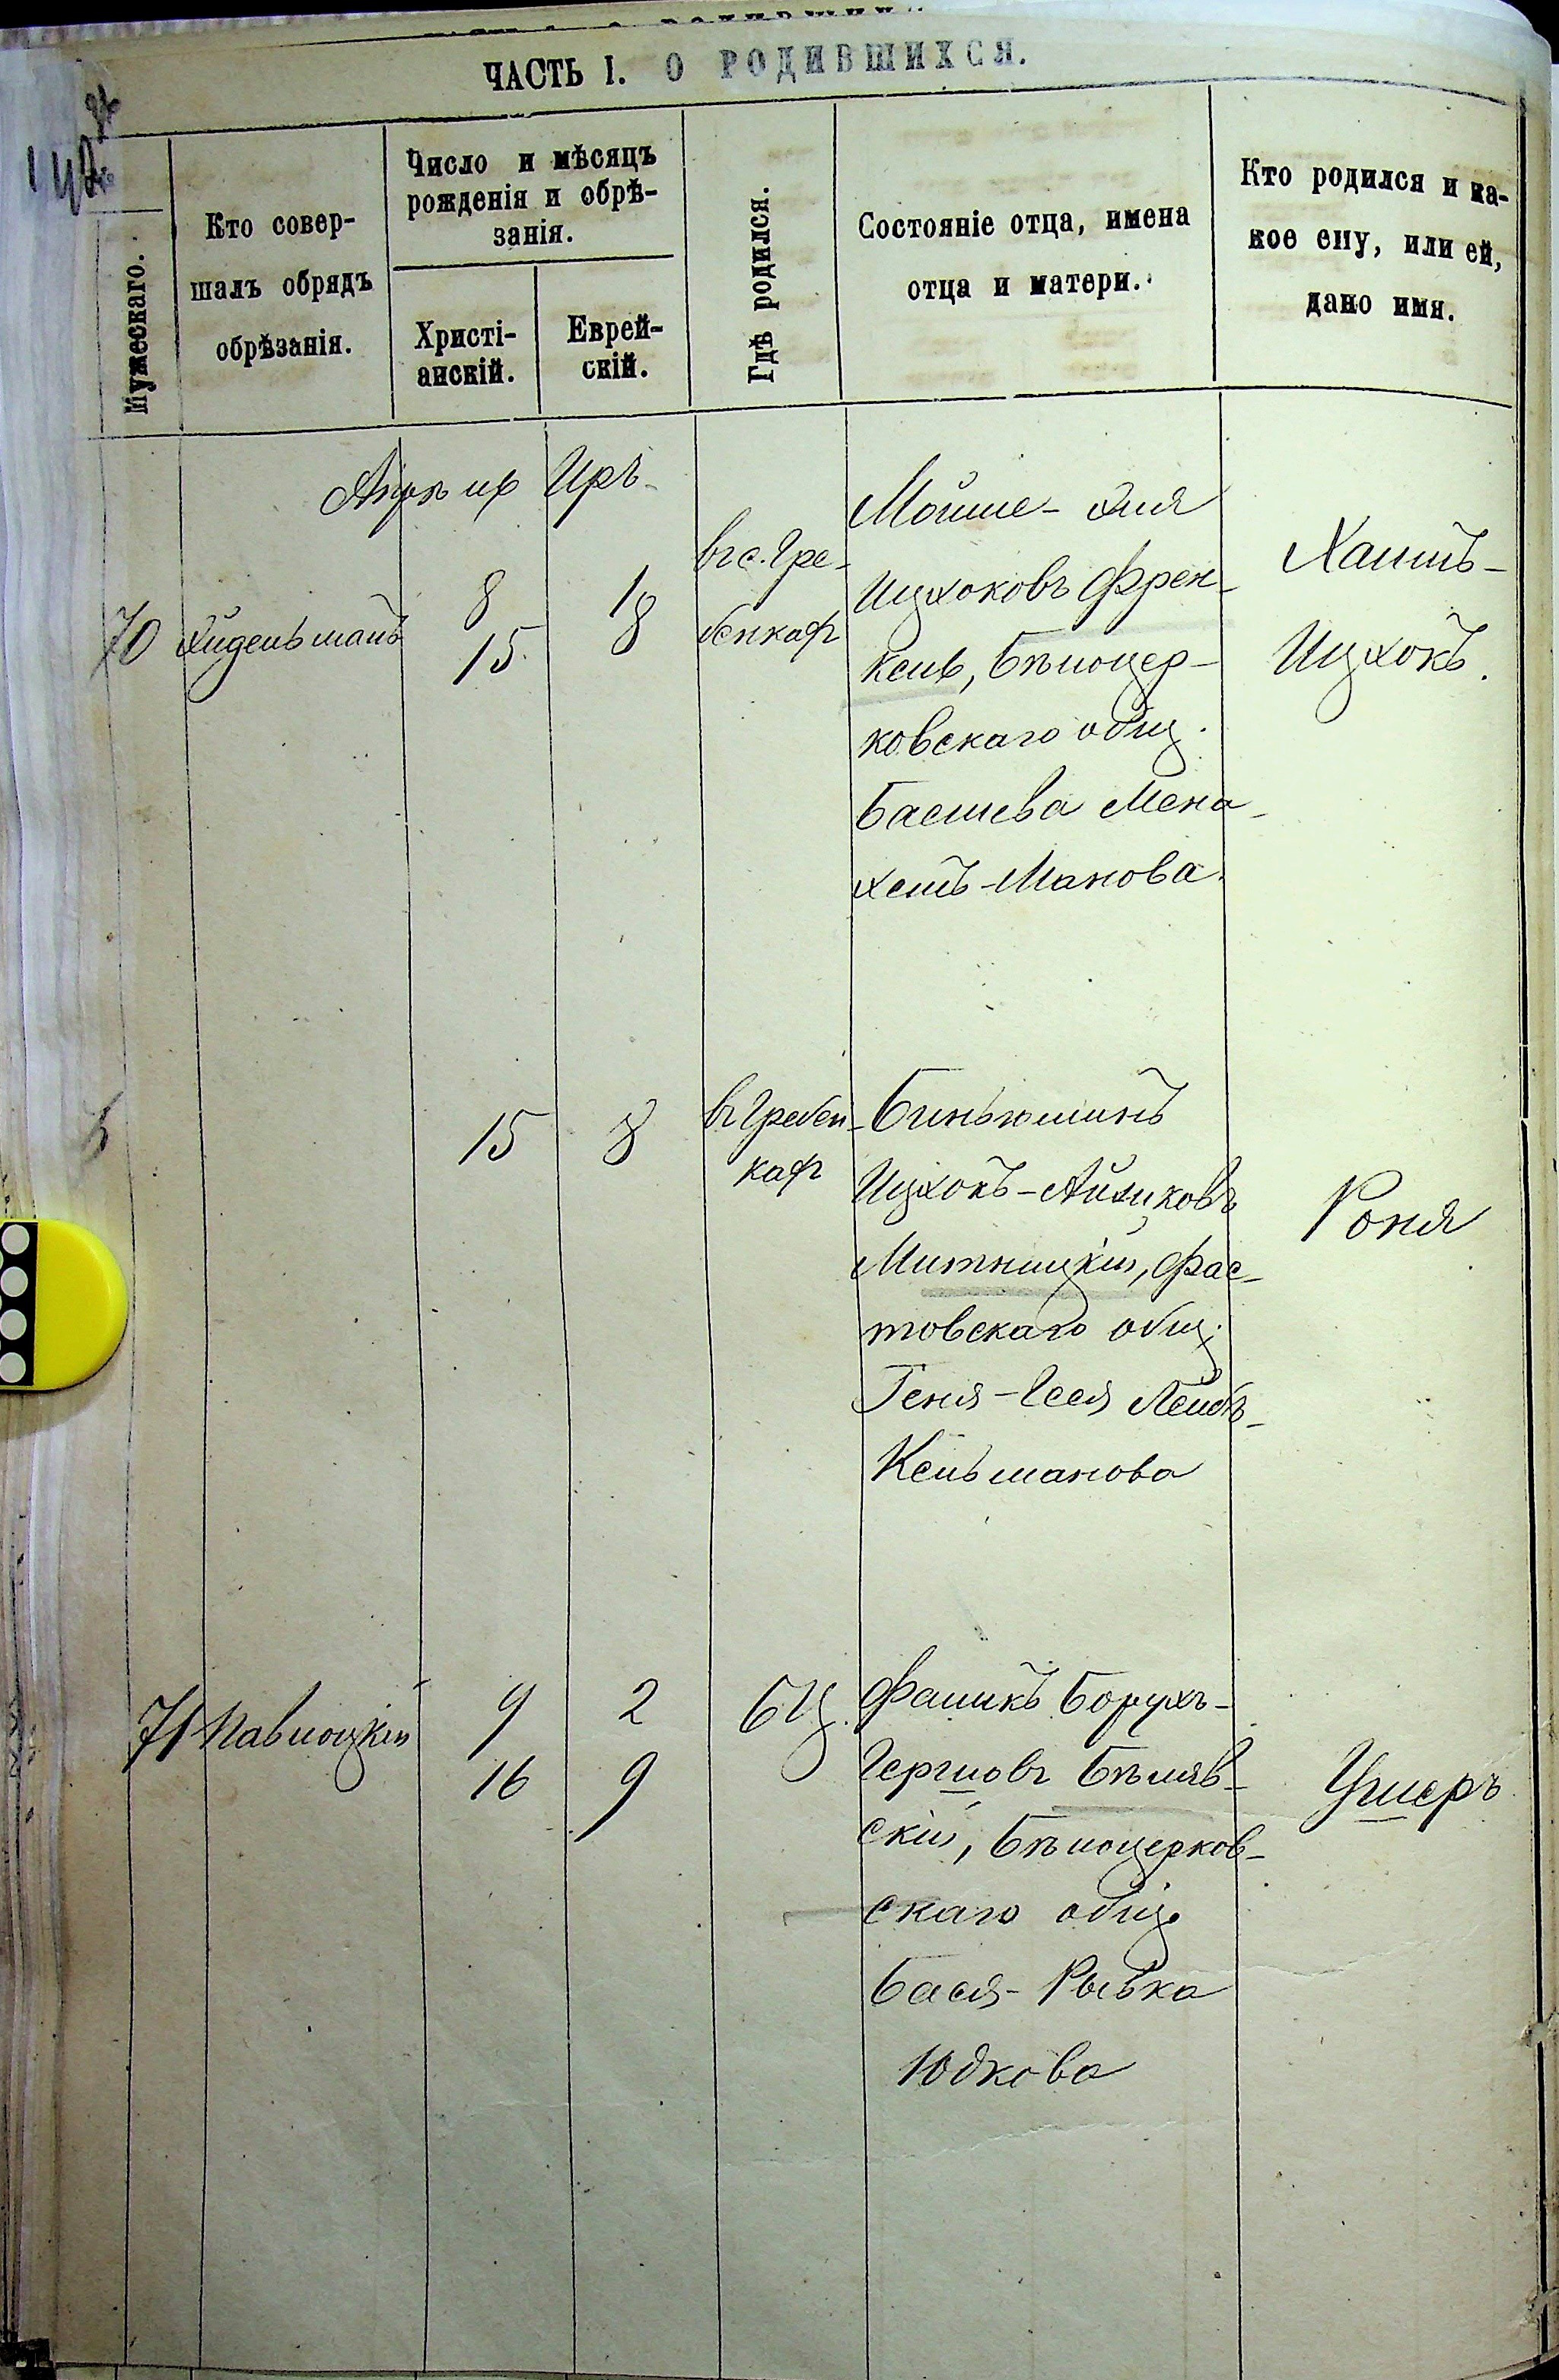 ЧАСТЬ I. О РОДИВШИХСЯ.
Мужескаго.
Кто совер-
шалъ обрядъ
обрѣзанія.
Число и мѣсяцъ
рожденія и обрѣ-
занія.
Христі-
анскій.
Еврей-
скій.
Гдѣ родился.
Состояніе отца, имена
отца и матери.
Кто родился и ка-
кое ему, или ей,
дано имя.
Апрѣль Иръ
70
Эйдельманъ
8
15
1
8
въ с. Гре-
бенках
Мойше-Эля
Ицхоковъ Френ-
кель, Бѣлоцер-
ковскаго общ.
Басшева Мена-
хемъ-Манова.
Хаимъ-
Ицхокъ.
15
8
въ Гребен-
ках
Биньюминъ
Ицхокъ-Айзиковъ
Митницкій, Фас-
товскаго общ.
Геня-Чсея Лейбъ-
Кельманова
Роня
71
Паволоцкій
9
16
2
9
БЦ.
Фалыкъ Борухъ-
Гершовъ Бѣляв-
скій, Бѣлоцерков-
скаго общ.
Бася-Рывка
Юдкова
Ушеръ